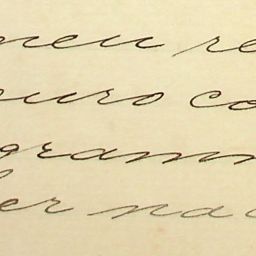 men re
ouro co
gramm
ber na